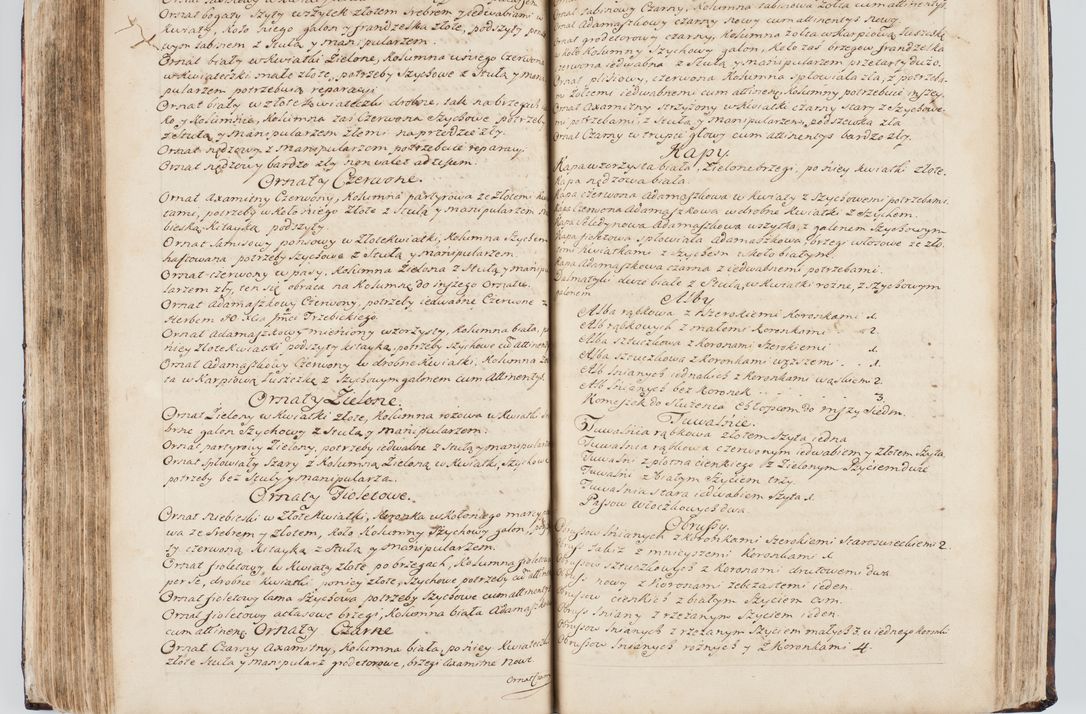 Ornat bogaty Szyty wszytek złotem Srebrem y iedwabiami w
kwiaty, koło niego galon y frandzelka złote, podszyty
wym tabinem z Stułą y manipularzem.
Ornat biały w kwiatki Zielone, Kolumna u niego Czerwona
w kwiateczki małe złote, potrzeby Szychowe z Stułą y mani
pularzem potrzebuią reparacyi
Ornat biały w złote kwiateczki drobne, tak na brzegach
ko y Kolumnie, Kolumna zaś Czerwona Szychowe potrzeby
z Stułą y manipularzem złemi na przedzie zły.
Ornat nędzowy z manipularzem, potrzebuie reparacyi.
Ornat nędzowy bardzo zły non valet ad usum.
Ornaty Czerwone.
Ornat axamitny Czerwony, Kolumna partyrowa ze złotemi
tami, potrzeby w koło niego złote z Stułą y manipularzem
bieską kitayką podszyty.
Ornat łatusowy ponsowy w złote kwiatki, Kolumna Szychem
haftowana potrzeby Szychowe z Stułą y manipularzem.
Ornat czerwony w pasy, Kolumna Zielona z Stułą y manipu
larzem zły, ten się obraca na Kolumnę do inszego Ornatu.
Ornat adamaszkowy Czerwony, potrzeby iedwabne Czerwone z
Herbem Trzebickiego.
Ornat adamaszkowy mieniony wzorzysty, Kolumna biała, po
niey złote kwiatki podszyty kitayką, potrzeby przy nim cum attinentys
Ornat Adamaszkowy Czerwony w drobne kwiatki, Kolumna żoł
ta w Karpiową łuszczkę z Szychowym galonem cum attinentys.
Ornaty Zielone.
Ornat Zielony w kwiatki złote, Kolumna rozowa w kwiatki
brne galon Szychowy z Stułą y manipularzem.
Ornat partyrowy Zielony, potrzeby iedwabne z Stułą y manipularzem
Ornat spłowiały Szary z Kolumną Zieloną w kwiatki, Szychowe
potrzeby bez Stuły y manipularza.
Ornaty Fioletowe.
Ornat niebieski w złote kwiatki, Koronka w koło niego
wa ze Srebrem y złotem, koło Kolumny Szychowy galon,
ty czerwoną kitayką z Stułą y manipularzem.
Ornat fioletowy, w kwiaty złote po brzegach, Kolumna fioleto
per se, drobne kwiatki po niey złote, Szychowe potrzeby cum attinen
Ornat fioletowy lama Szychowa potrzeby Szychowe cum attinentys
Ornat fioletowy atłasowe brzegi, Kolumna biała Adamaszkowa
cum attinen. Ornaty Czarne
Ornat Czarny Axamitny, Kolumna biała, po niey kwiateczki
złote Stuła y manipularz grodetorowe, brzegi axamitne nowe.
Ornat Czarny
Ornat tabinowy Czarny, Kolumna tabinowa żołta cum attinentys.
Ornat Adamaszkowy czarny Nowy cum attinentys Nowy.
Ornat grodetorowy czarny, Kolumna żołta w Karpiową łuszczkę
w koło Kolumny Szychowy galon, koło zaś brzegow frandzelka
czerwona iedwabna z Stułą y manipularzem przetarty dużo.
Ornat plisiowy, czerwona Kolumna spłowiała zła, z potrzeba
mi żołtemi iedwabnemi cum attinen. Kolumny potrzebuie inszey.
Ornat Axamitny strzyżony w kwiatki czarny Stary z Szychowe
mi potrzebami, z Stułą y manipularzem, podszewka zła.
Ornat Czarny w trupie głowy cum attinentys bardzo zły.
Kapy.
Kapa wzorzysta biała, Zielone brzegi, po niey kwiatki złote.
Kapa nędzowa biała.
Kapa czerwona Adamaszkowa w kwiaty z Szychowemi potrzebami.
Kapa Czerwona Adamaszkowa w drobne kwiatki z Szychem.
Kapa Bledynowa Adamaszkowa wszystka, z galonem Szychowym.
Kapa fioletowa spłowiała Adamaszkowa, brzegi włosowe ze zło
temi kwiatkami z Szychem w koło białym.
Kapa Adamaszkowa czarna z iedwabnemi potrzebami.
Dalmatyki dwie białe z Stułą, w kwiatki rożne, z Szychowym
galonem
Alby
Alba rąbkowa z Szerokiemi Koronkami 1.
Alb rąbkowych z małemi Koronkami . . 2.
Alba Sztuczkowa z Koronami Szerokiemi 1.
Alba Sztuczkowa z Koronkami węższemi . . 1.
Alb Lnianych iednakich z Koronkami wąskiemi 2.
Alb Lnianych bez Koronek . . . . 3.
Komeszek do Służenia Chłopcom do mszy Siedm.
Tuwalnie.
Tuwalnia rąbkowa złotem Szyta iedna
Tuwalnia rąbkowa czerwonym iedwabiem y złotem Szyta
Tuwalni z płotna cienkiego z Zielonym Szyciem dwie
Tuwalni z białym Szyciem trzy.
Tuwalnia Stara iedwabiem Szyta 1.
Passow włoczkowych dwa.
Obrusy.
Obrusow Lnianych z Koronkami Szerokiemi Staroswieckiemi 2.
Obrus takiż z mnieyszemi Koronkami 1
Obrusow Sztuczkowych z Koronami drutowemi dwa.
Obrus nowy z Koronami zębczastemi ieden.
Obrusow cienkich z białym Szyciem
Obrus Lniany z rzezanym Szyciem ieden.
Obrusow Lnianych z rzezanym Szyciem małych 3.
Obrusow Lnianych rożnych y z Koronkami 4.